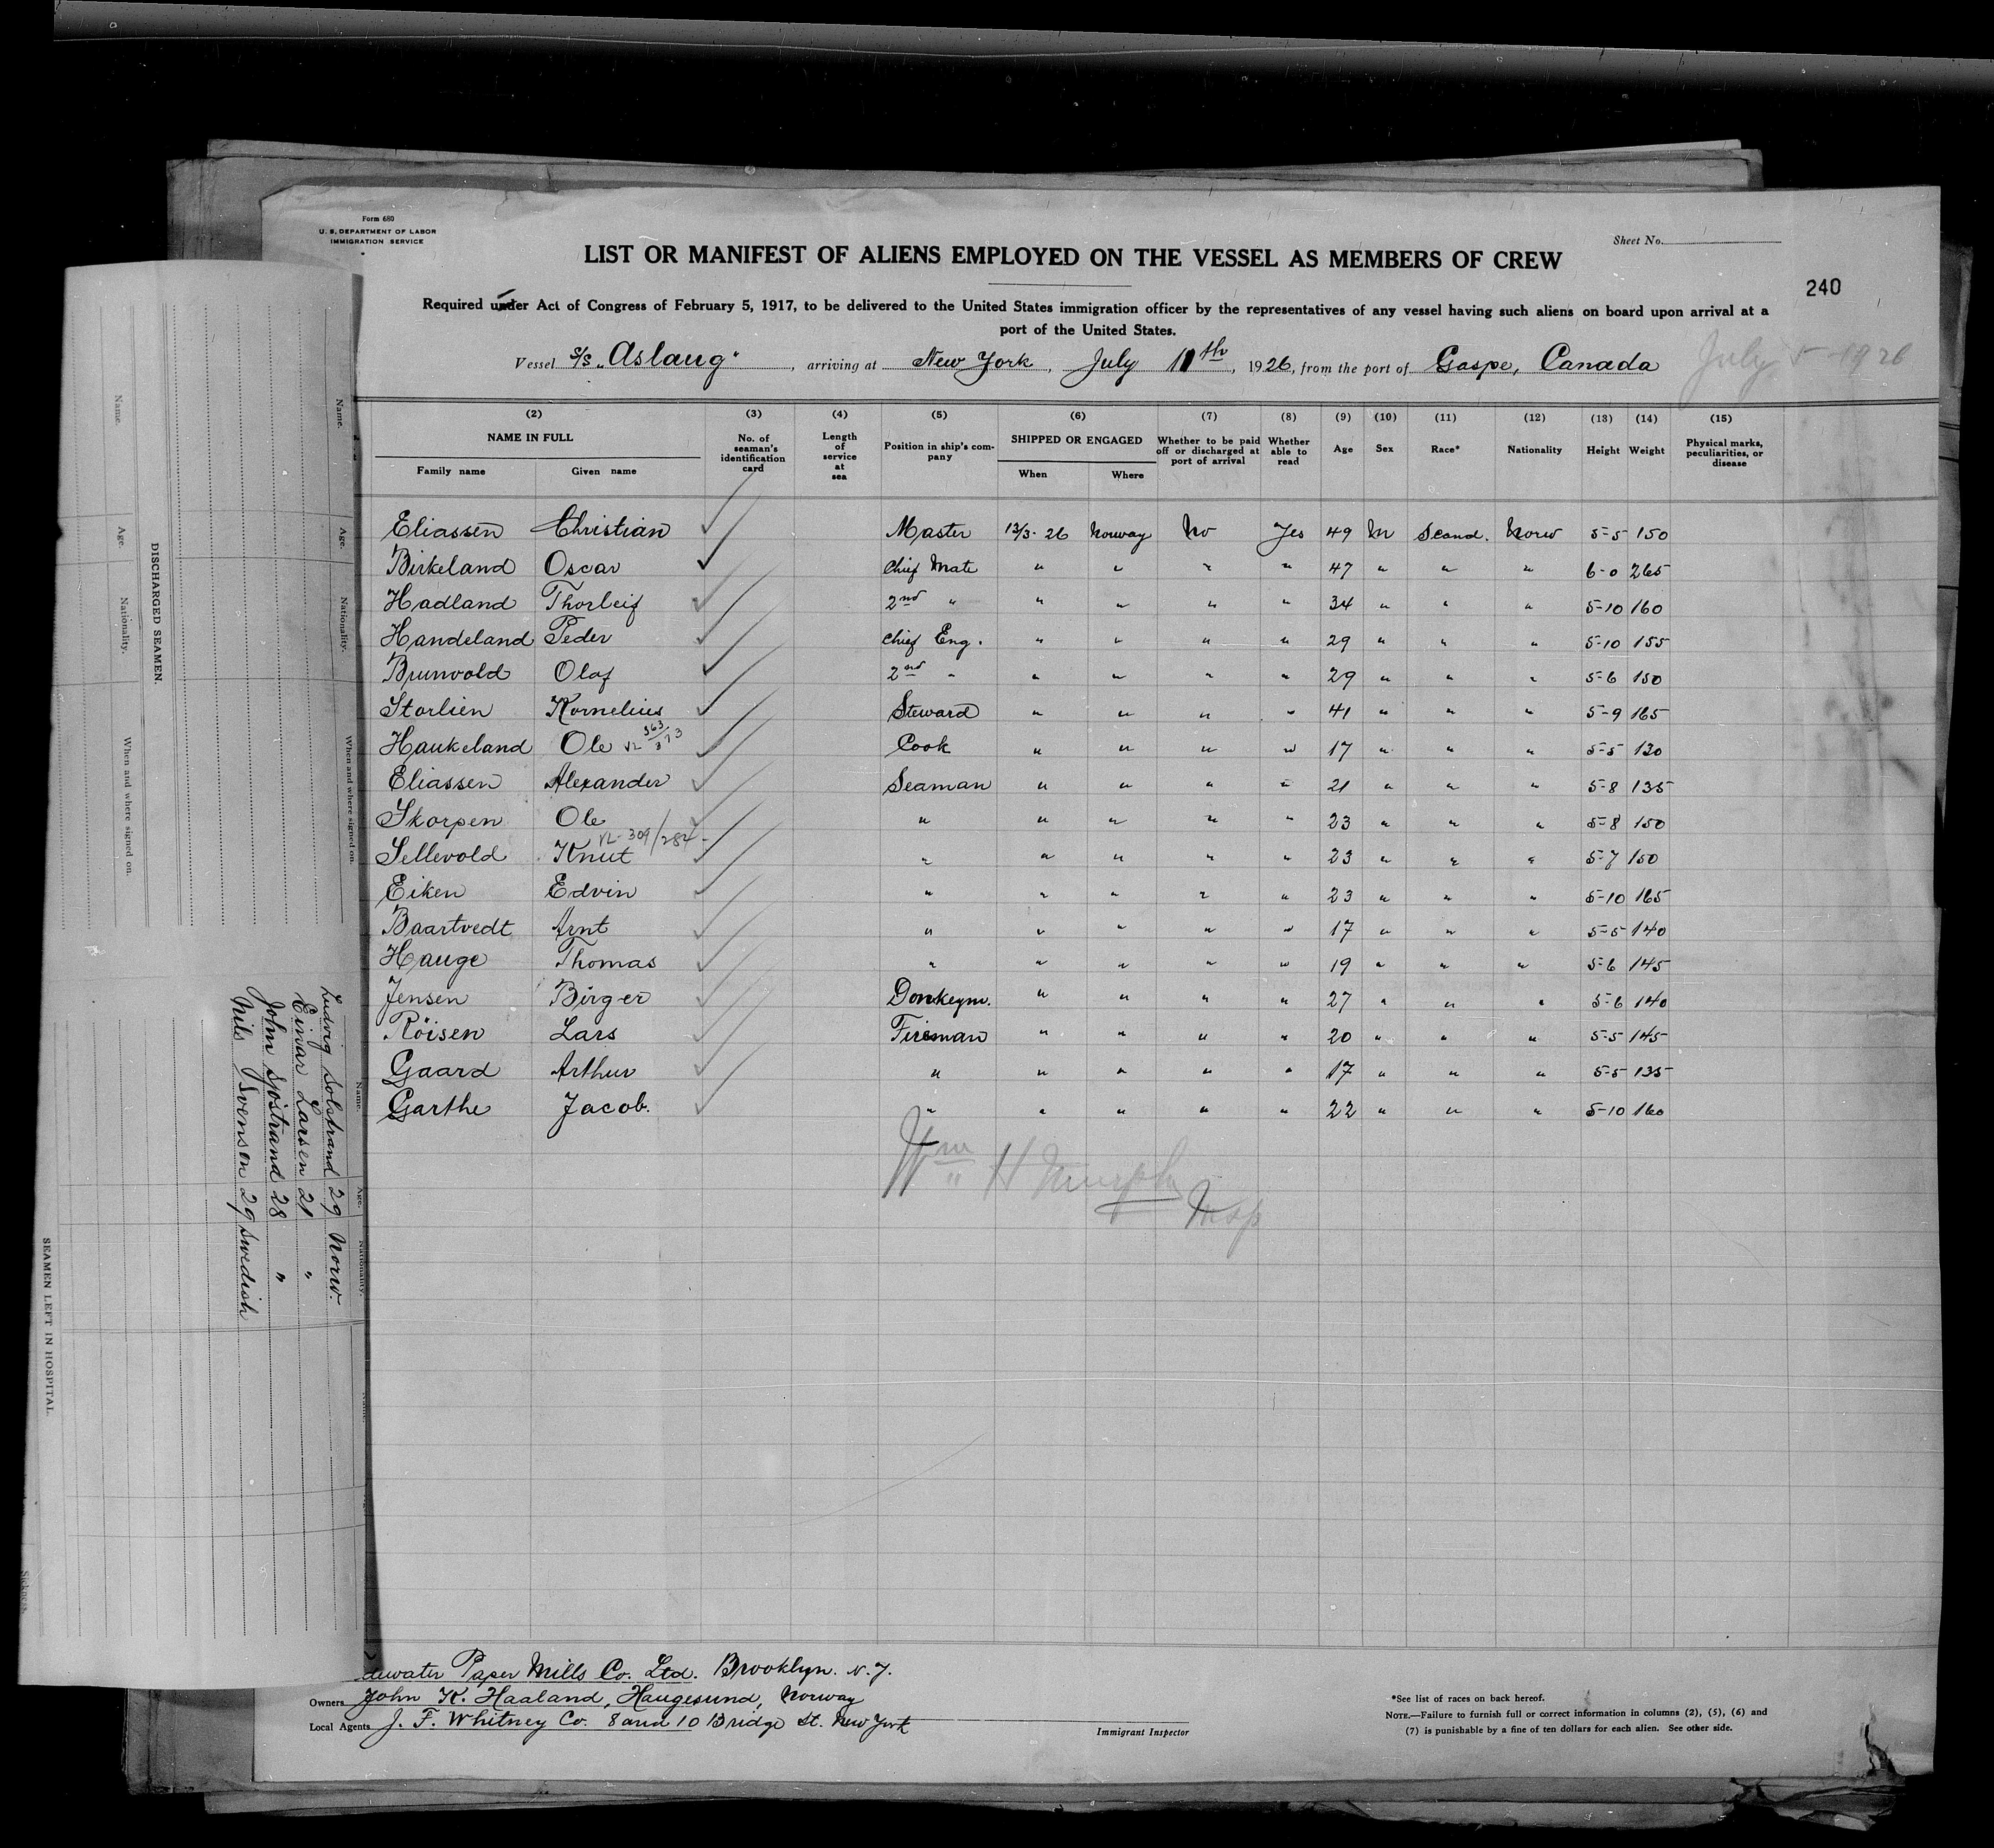 Form 680
U. S. DEPARTMENT OF LABOR
IMMIGRATION SERVICE
Sheet No.
LIST OR MANIFEST OF ALIENS EMPLOYED ON THE VESSEL AS MEMBERS OF CREW
240
Required under Act of Congress of February 5, 1917, to be delivered to the United States immigration officer by the representatives of any vessel having such aliens on board upon arrival at a
port of the United States.
Vessel S/S "Aslaug", arriving at New York, July 11th, 1926, from the port of Gaspe, Canada July 5 1926
(2) (3) (4) (5) (6) (7) (8) (9) (10) (11) (12) (13) (14) (15)
NAME IN FULL No. of seaman's identification card Length of service at sea Position in ship's company SHIPPED OR ENGAGED Whether to be paid off or discharged at port of arrival Whether able to read Age Sex Race* Nationality Height Weight Physical marks, peculiarities, or disease
Family name Given name When Where
Eliassen Christian Master 13/3-26 Norway No Yes 49 M Scand. Norw 5-5 150
Birkeland Oscar Chief Mate " " " " 47 " " " 6-0 265
Hadland Thorleif 2nd " " " " " 34 " " " 5-10 160
Handeland Peder Chief Eng. " " " " 29 " " " 5-10 155
Brunvold Olaf 2nd " " " " " 29 " " " 5-6 150
Storlien Kornelius Steward " " " " 41 " " " 5-9 165
Haukeland Ole VL 363/373 Cook " " " " 17 " " " 5-5 130
Eliassen Alexander Seaman " " " " 21 " " " 5-8 135
Skorpen Ole " " " " " 23 " " " 5-8 150
VL-309/284-
Sellevold Knut " " " " " 23 " " " 5-7 150
Eiken Edvin " " " " " 23 " " " 5-10 165
Baartvedt Arnt " " " " " 17 " " " 5-5 140
Hauge Thomas " " " " " 19 " " " 5-6 145
Jensen Birger Donkeym. " " " " 27 " " " 5-6 140
Röisen Lars Fireman " " " " 20 " " " 5-5 145
Gaard Arthur " " " " " 17 " " " 5-5 135
Garthe Jacob. " " " " " 22 " " " 5-10 160
Wm H Murphy
Insp
DISCHARGED SEAMEN.
Name. Age. Nationality. When and where signed on.
Name. Age. Nationality. When and where signed on.
Name. Age. Nationality.
Ludvig Solstrand 29 Norw.
Einar Larsen 21 "
John Sjöstrand 28 "
Nils Svenson 29 Swedish
SEAMEN LEFT IN HOSPITAL.
Paper Mills Co. Ltd. Brooklyn. N.Y.
Owners John K. Haaland, Haugesund, Norway
Local Agents J. F. Whitney Co. 8 and 10 Bridge St. New York
Immigrant Inspector
*See list of races on back hereof.
NOTE.—Failure to furnish full or correct information in columns (2), (5), (6) and
(7) is punishable by a fine of ten dollars for each alien. See other side.